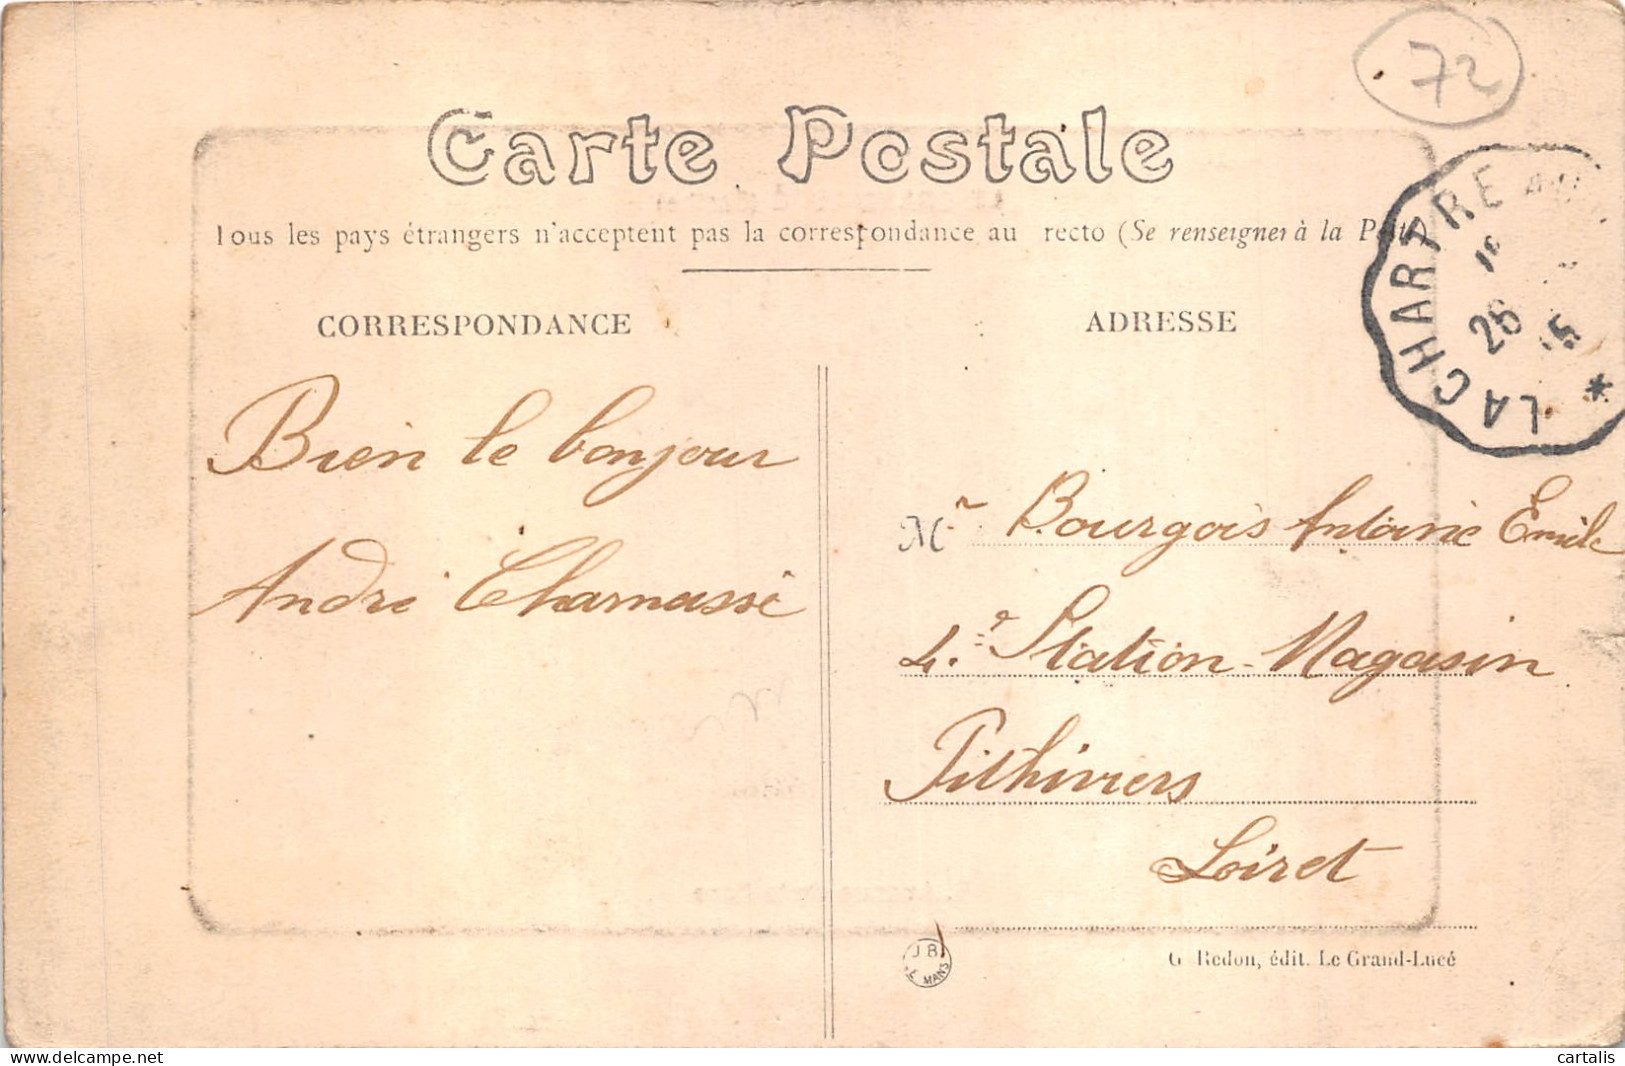 72
Carte Postale
Tous les pays étrangers n'acceptent pas la correspondance au recto (Se renseigner à la Poste)
CORRESPONDANCE
ADRESSE
LA CHARTRE
26
15
Bien le bonjour
André Chamassé
Mr Bourgois Antoine Emile
4.e Station-Magasin
Pithiviers
Loiret
J B
LE MANS
G. Redon, édit. Le Grand-Lucé
cartalis